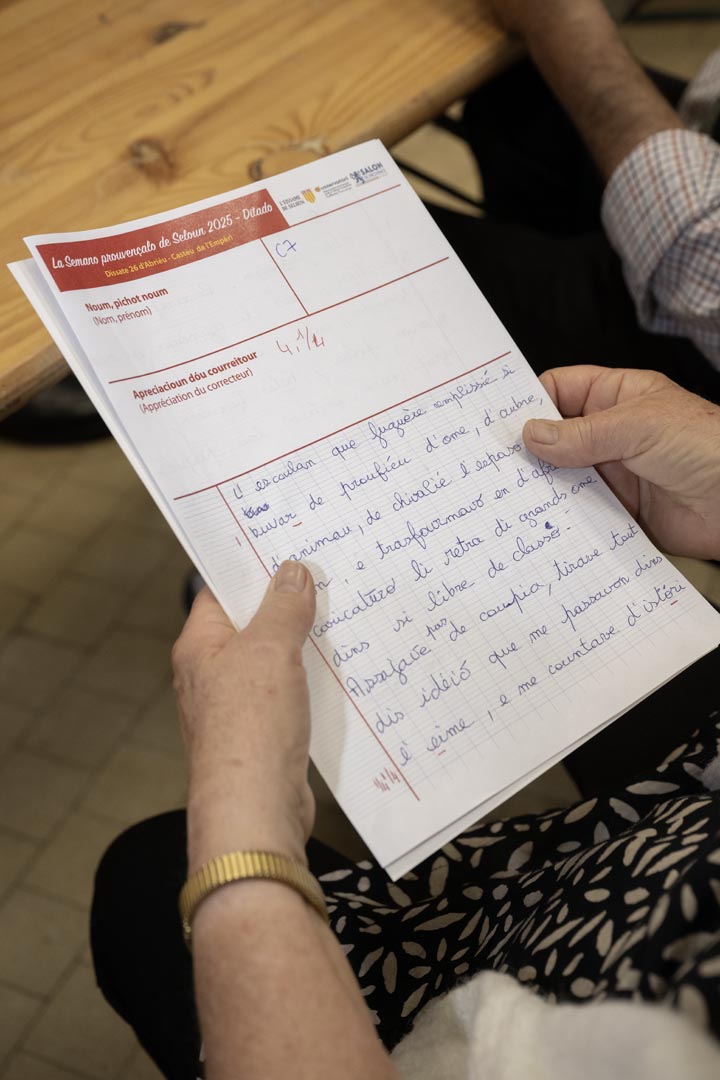 La Semano prouvençalo de Seloun 2025 - Ditado
Dissate 26 d'Abriéu - Castèu de l'Empèri
L'ESSAIME
DE SELOUN
SALON
Noum, pichot noum
(Nom, prénom)
C7
Apreciacioun dóu courreitour
(Appréciation du correcteur)
4, 1/4
escoulan que fuguère emplissié si
buvar de proufiéu d'ome, d'aubre,
d'animau, de chivalié l'espaso
, e trasfourmavo en d'
caricaturo li retra di grands ome
dins si libre de classo.
Assajave pas de coupia, tirave tout
dis idèio que me passavon dins
l'eime, e me countave d'istòri